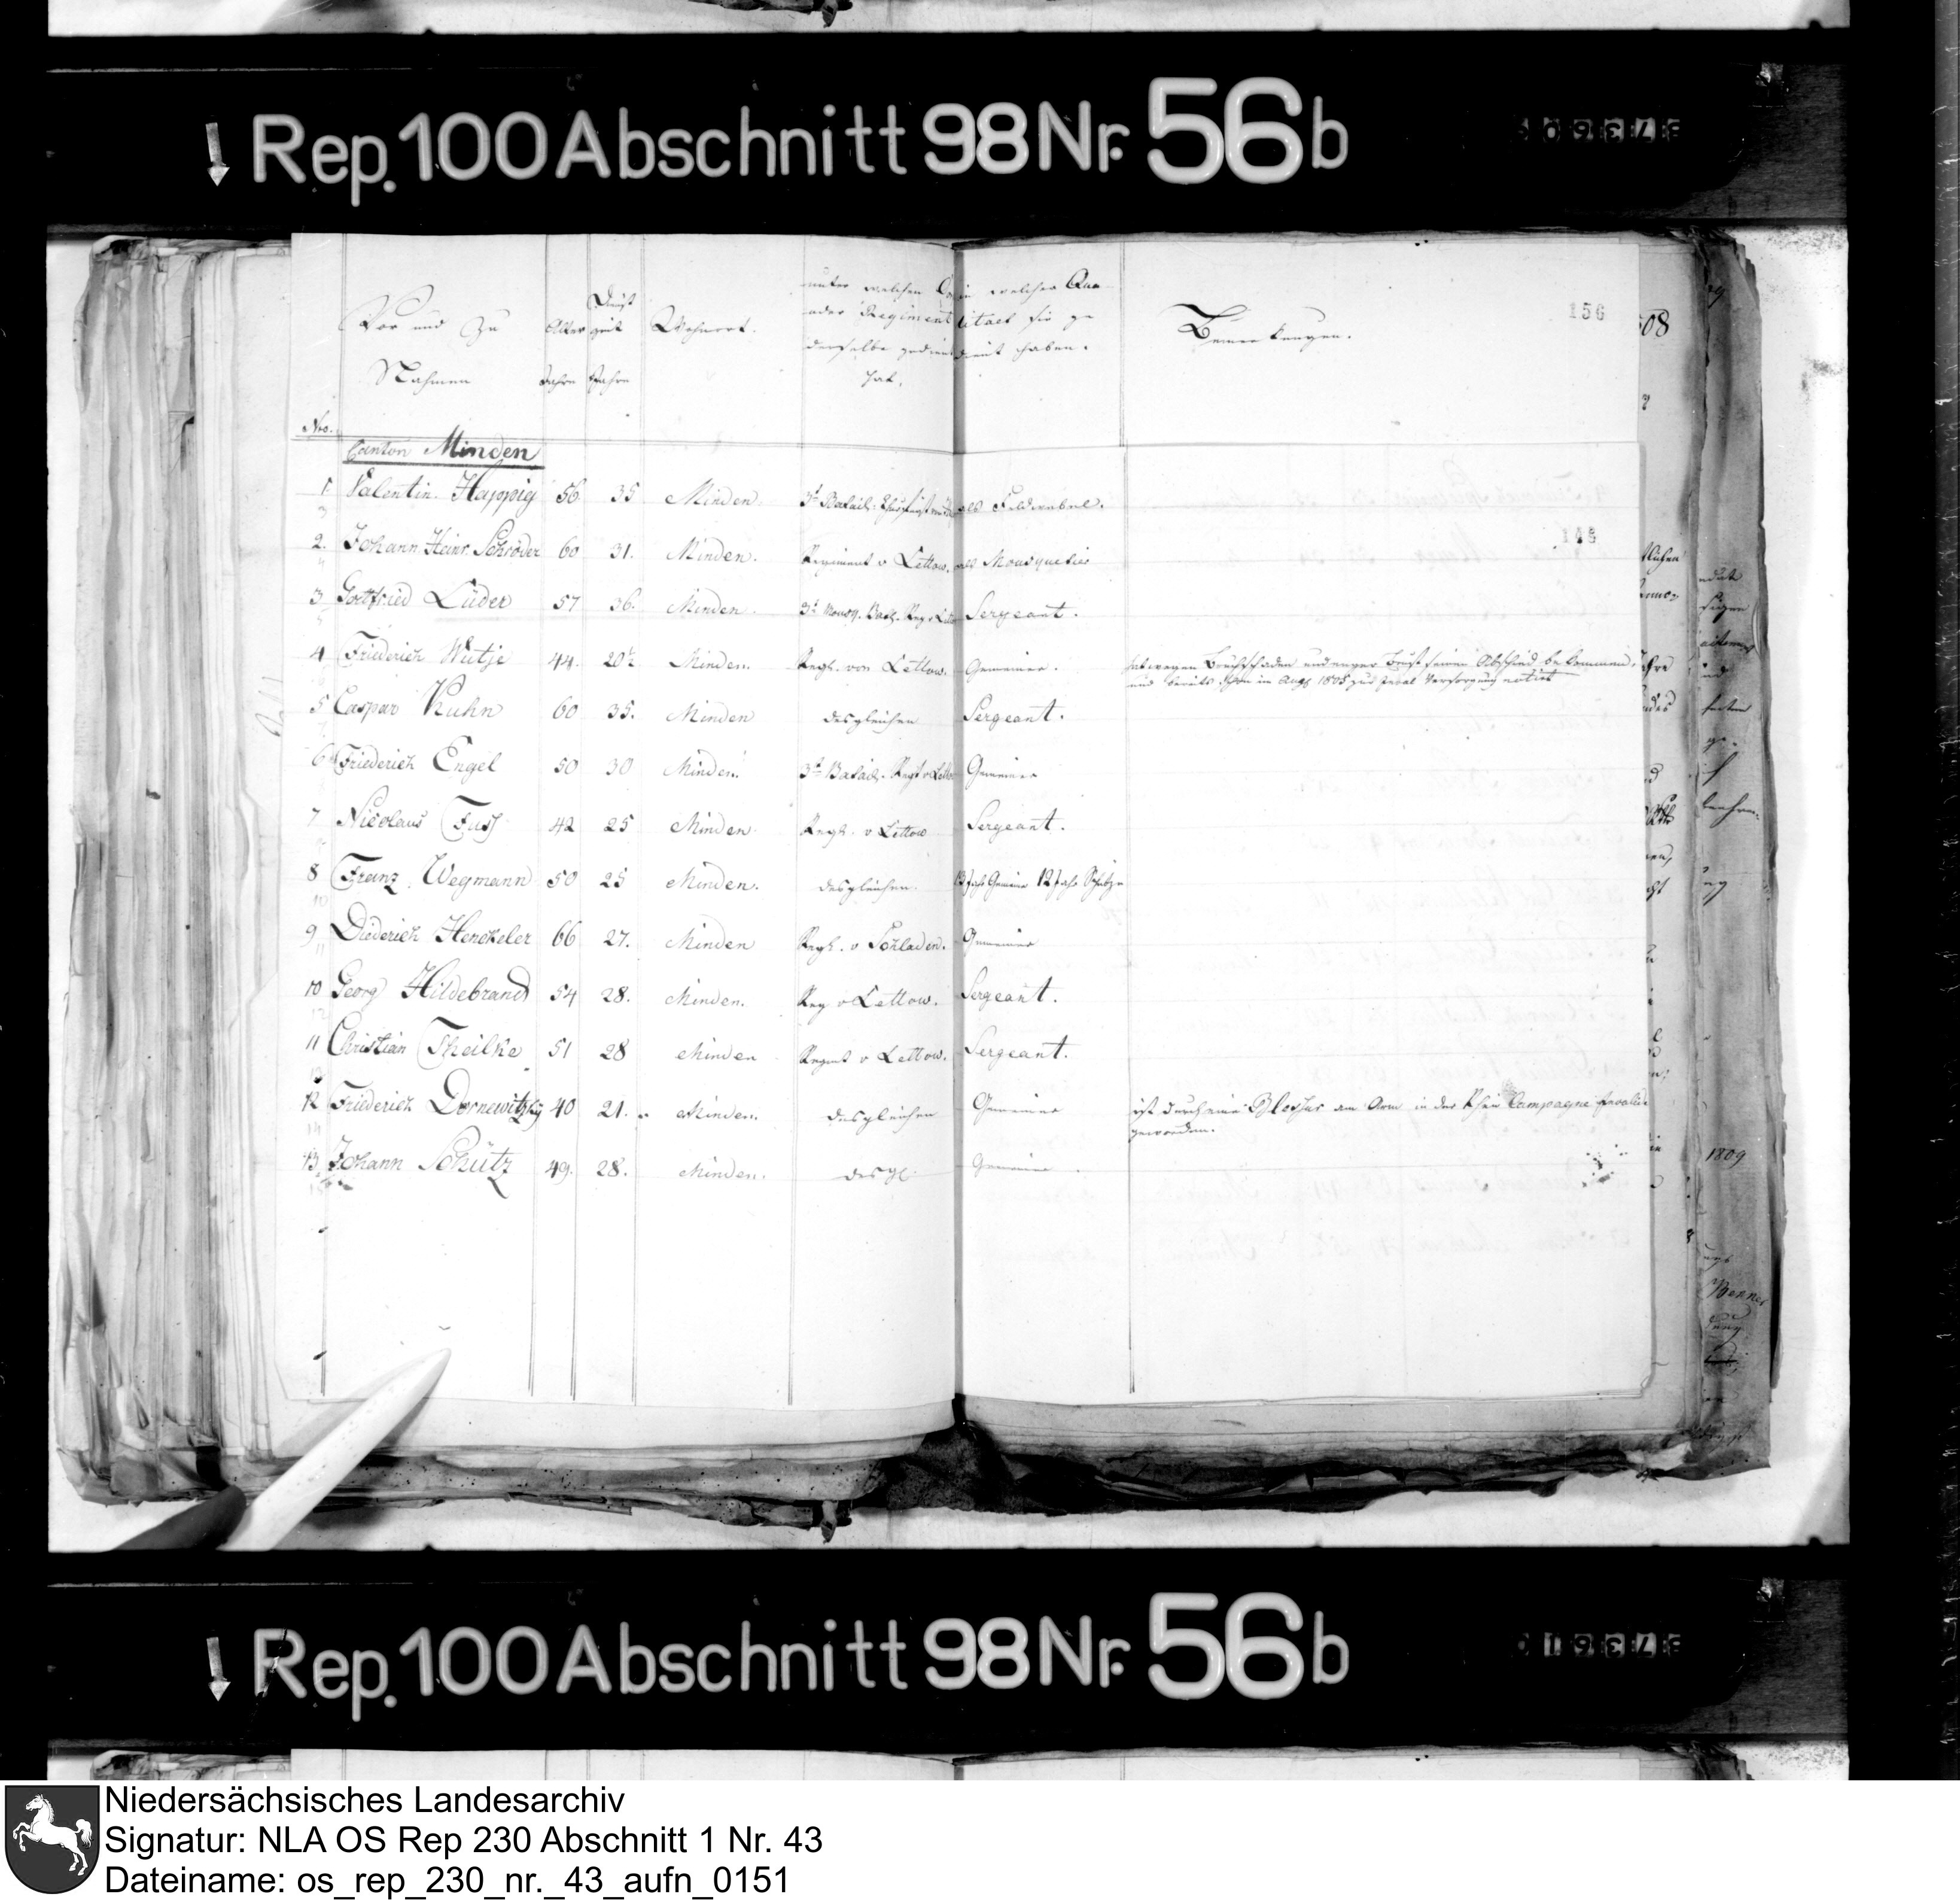 Rep. 100 Abschnitt 98 Nr. 56 b
156
08
Vor und Zu
Nahmen
Alter
Jahre
Dienst
zeit
Jahre
Wohnort.
unter welchen
oder Regiment
derselbe gedient
hat.
in welcher Qua
litaet sie ge
dient haben.
Bemerkungen.
Nro.
Canton Minden
1 Valentin Happig 56 35 Minden. 3t Bataill. als Feldwebel.
2. Johann Heinr. Schröder 60 31. Minden. Regiment v Lettow. als Mousquetier
148
3 Gottfried Lüder 57 36. Minden. 3t Mousq. Bat. Reg v Sergeant.
4 Friederich Wutje 44. 20½ Minden. Regt. von Lettow. Gemeiner. hat wegen Bruchschaden und enger Brust seinen Abschied bekommen,
und bereits schon im Aug 1805 zur Versorgung notirt
5 Caspar Kuhn 60 35. Minden desgleichen Sergeant.
6 Friederich Engel 50 30 Minden. 3t Bataill. Regt v Gemeiner
7 Nicolaus Fuss 42 25 Minden. Regt. v Lettow Sergeant.
8 Franz Wegmann 50 25 Minden. desgleichen. 13 Jahr Gemeiner 12 Jahr Schütze
9 Diederich Henckeler 66 27. Minden Regt. v Schladen. Gemeiner
10 Georg Hildebrand 54 28. Minden. Reg v Lettow. Sergeant.
11 Christian Theilke 51 28 Minden Regmt v Lettow. Sergeant.
12 Friederich Dornewitzky 40 21. Minden. desgleichen Gemeiner ist durch eine Blessur am Arm in der Rhein Campagne Invalide
geworden.
13 Johann Schütz 49. 28. Minden. desgl. Gemeiner
1809
Rep. 100 Abschnitt 98 Nr. 56 b
Niedersächsisches Landesarchiv
Signatur: NLA OS Rep 230 Abschnitt 1 Nr. 43
Dateiname: os_rep_230_nr._43_aufn_0151